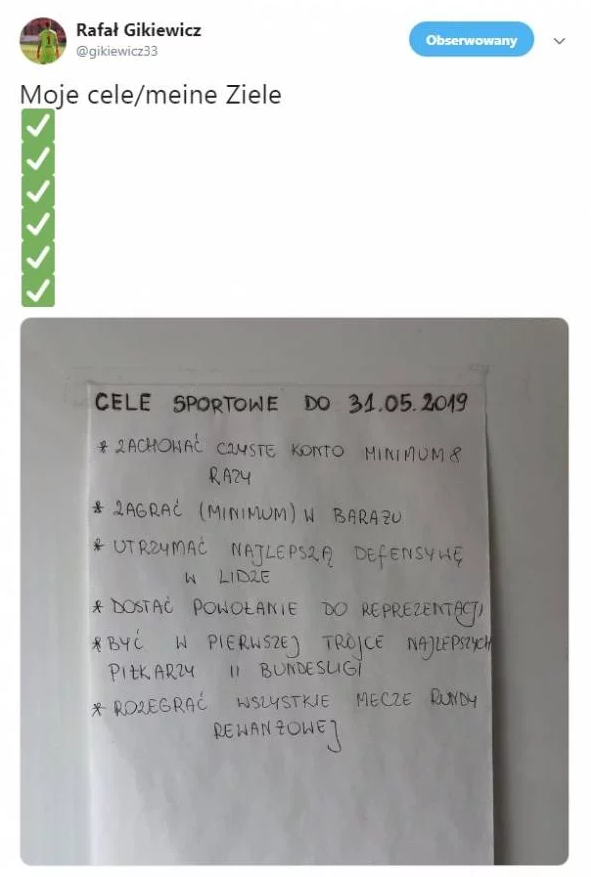 Rafał Gikiewicz
@gikiewicz33
Obserwowany
Moje cele/meine Ziele
CELE SPORTOWE DO 31.05.2019
* ZACHOWAĆ CZYSTE KONTO MINIMUM 8
RAZY
* ZAGRAĆ (MINIMUM) W BARAŻU
* UTRZYMAĆ NAJLEPSZĄ DEFENSYWĘ
W LIDZE
* DOSTAĆ POWOŁANIE DO REPREZENTACJI
* BYĆ W PIERWSZEJ TRÓJCE NAJLEPSZYCH
PIŁKARZY II BUNDESLIGI
* ROZEGRAĆ WSZYSTKIE MECZE RUNDY
REWANŻOWEJ